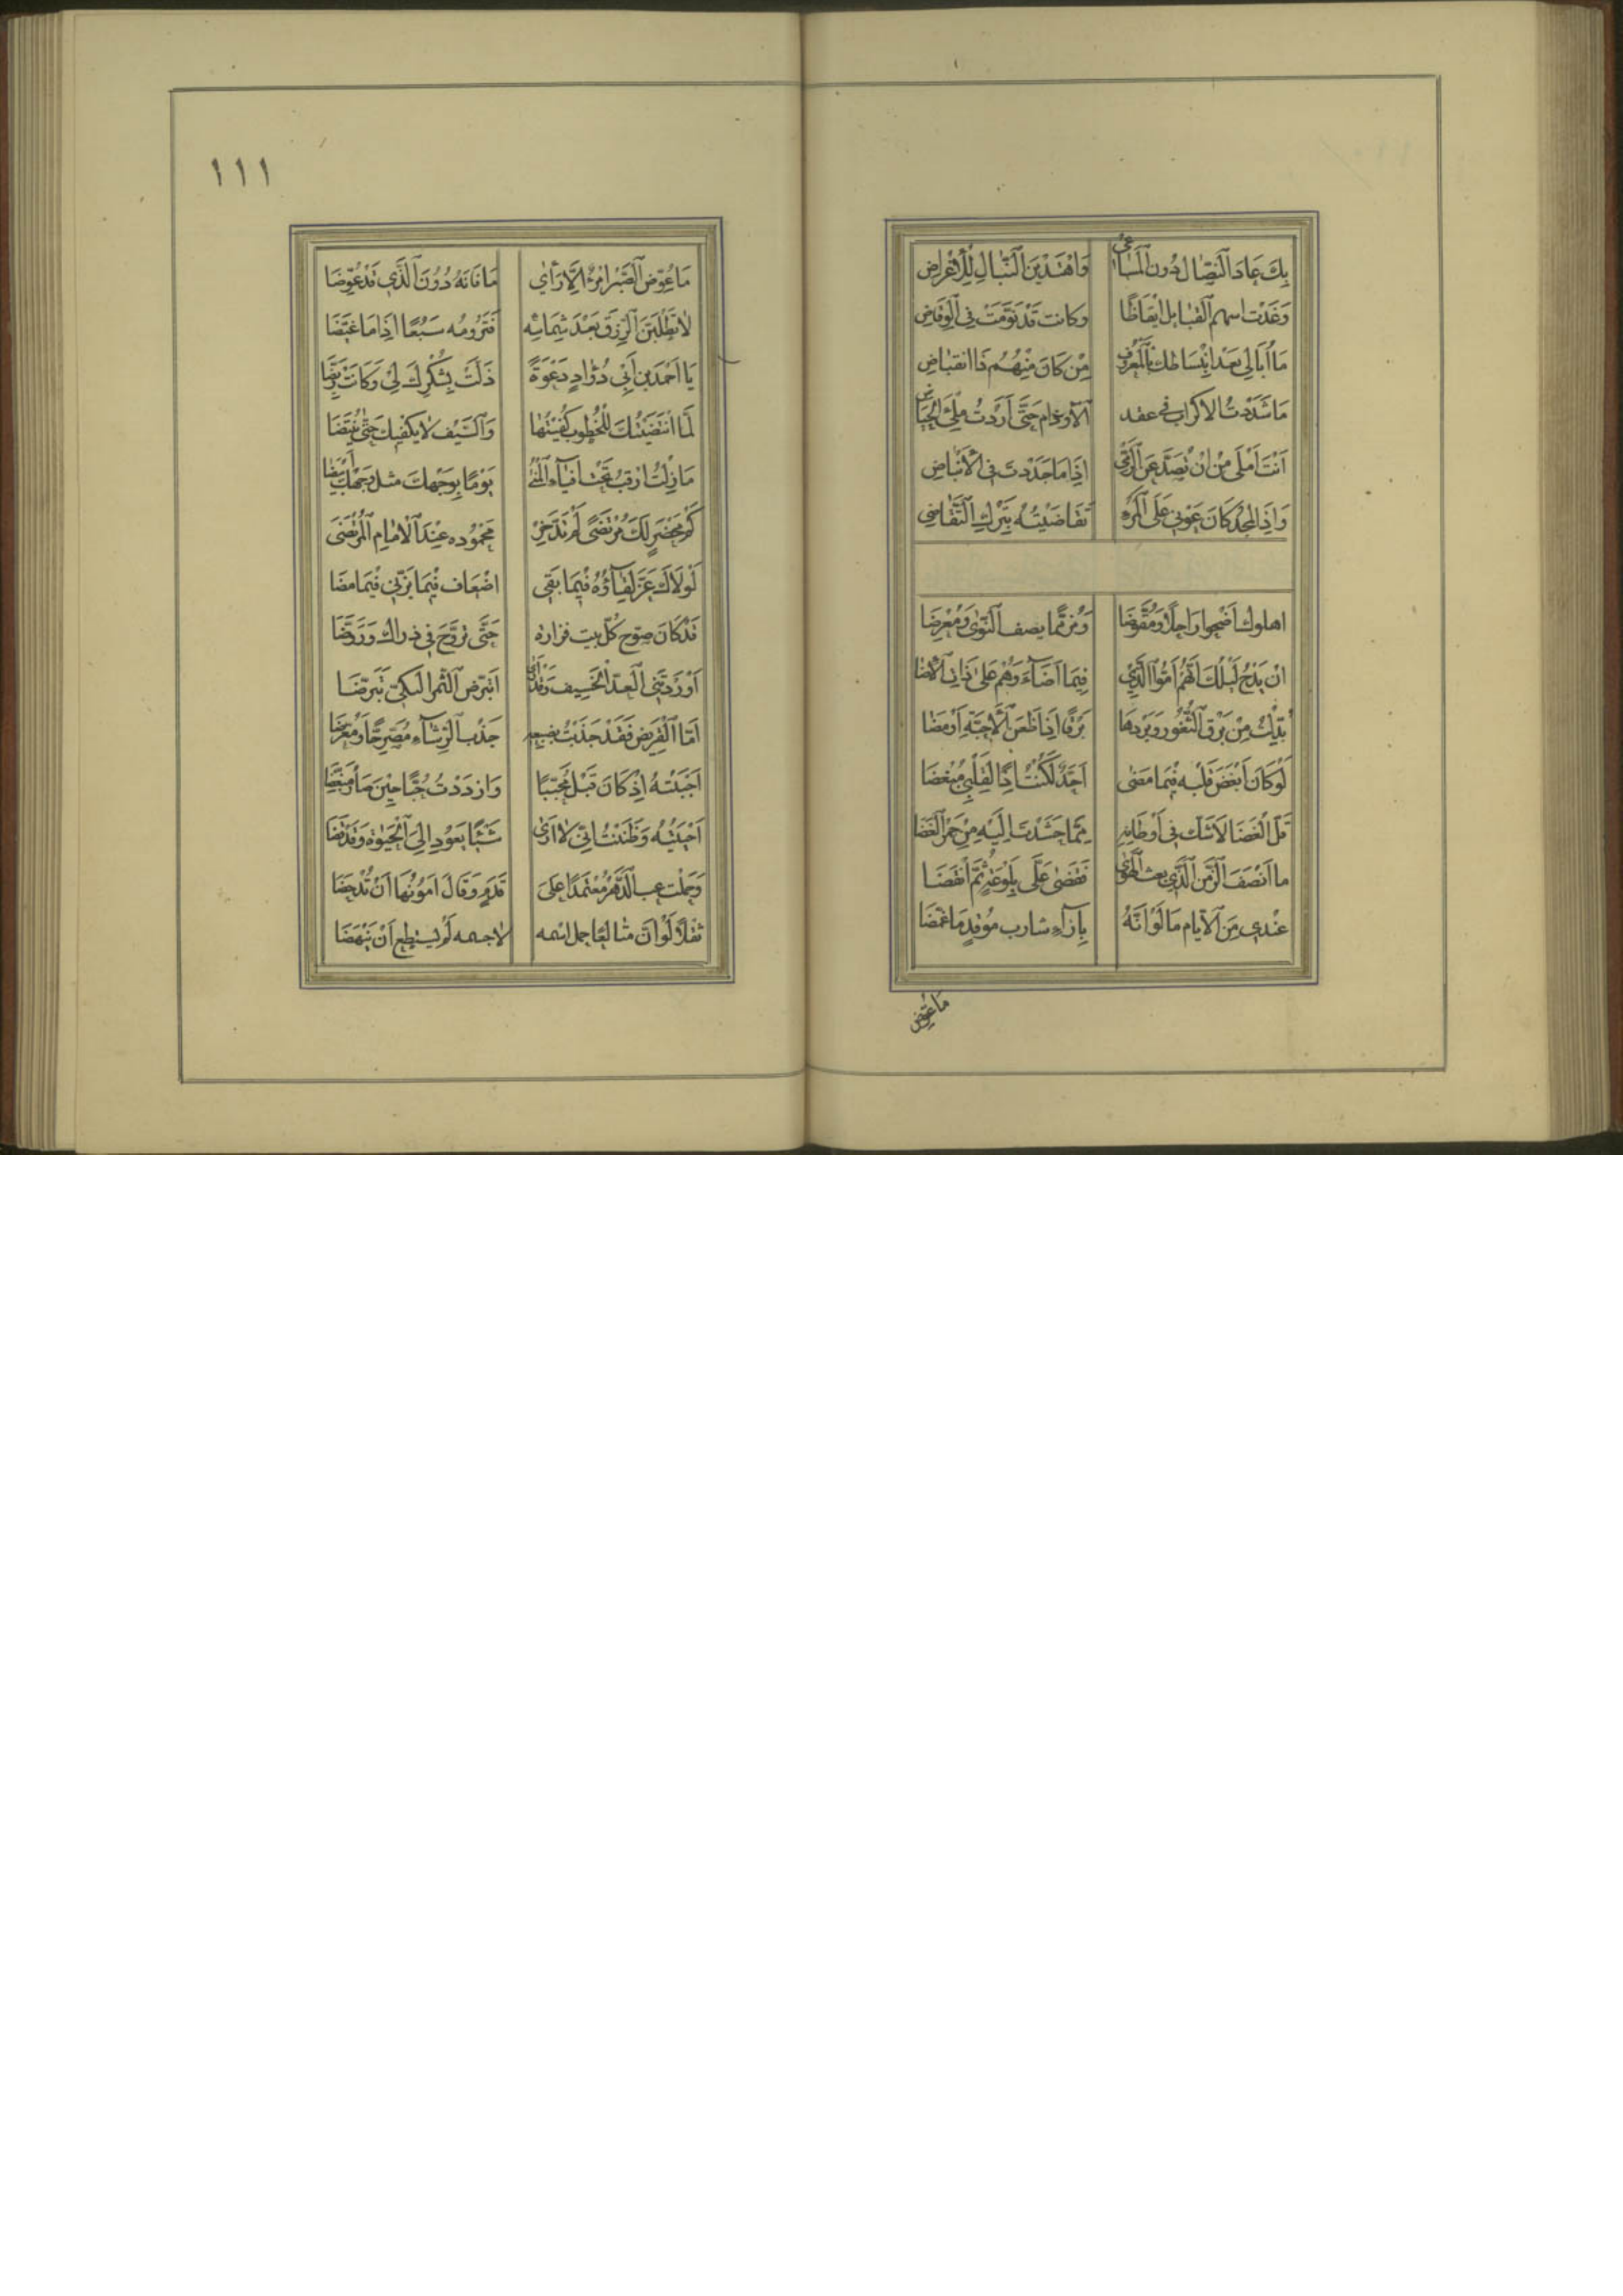 بِكَ عَادَ النِّضَالُ دُونَ الْمَسَاعِي وَاهْتَدَيْنَ النِّبَالِ لِلْأَغْرَاضِ
وَغَدَتْ اسهم القبايل ايقاظًا وكانت قَدْ نَوَّمَتْ فِي الْوِفَاضِ
مَا أُبَالِي بَعْدَ انْبِسَاطِكَ بِالْمَعْرُوفِ مِنْ كَانَ مِنْهُمْ ذَا انقباضِ
مَا شَدَدْتُ الاكراب فى عقد الاوذام حَتَّى أَرَدْتُ مِلْءَ الْحِيَاضِ
اَنْتَ اَمْلَى مِنْ اَنْ تُصَدَّ عَنِ الرُّقَى اِذَا مَا جَدَدْتَ فِي الْأَنْبَاضِ
وَاِذَا الْمَجْدُ كَانَ عَوْنِي عَلَى الْمَرْءِ تَقَاضَيْتُهُ بِتَرْكِ التَّقَاضِي
اهلوك اَضْحَوا رَاحِلًا وَمُقَوِّضَا وَمُزَمِّمًا يصف النَّوَى وَمُغْرِضَا
اِنْ يَدْجُ لَيْلُكَ اَنَّهُمْ اَمُّوا اللِّوَى فَبِمَا اَضَاءَ وَهُمْ عَلَى ذَاتِ الْأَضَا
بُدِّلْتُ مِنْ بَرْقِ الثُّغُورِ وَبَرْدِهَا بَرْقًا اِذَا ظَعَنَ الْأَحِبَّةُ اَوْمَضَا
لَوْ كَانَ اَبْغَضَ قَلْبَه فِيمَا مَضَى اَحَدٌ لَكُنْتُ اِذًا لِقَلْبِي مُبْغِضَا
قَلَّ الْغَضَا لَا شَكَّ فِي اَوْطَانِهِ مِمَّا حَشَدْتَ اِلَيْهِ مِنْ جَمْرِ الْغَضَا
ما اَنْصَفَ الزَّمَنُ الَّذِي بعث الْهَوَى فَقَضَى عَلَى بِلَوْعَةٍ ثُمَّ انْقَضَا
عِنْدِي مِنَ الْأَيَّامِ مَا لَوْ اَنَّهُ بِإِزَاءِ شارب مُرْقِدٍ مَا غَمَّضَا
مَا عُوِّضَ
١١١
مَا عُوِّضَ الصَّبْرَ امْرُؤٌ اِلَّا رَأَى مَا فَاتَهُ دُونَ الَّذِي قَدْ عُوِّضَا
لَا تَطْلُبَنَّ الرِّزْقَ بَعْدَ شِمَاسِهِ فَتَرُومُه سَبُعًا اِذَا مَا غَيَّضَا
يَا اَحْمَدَ بْنَ اَبِي دُوَادٍ دَعْوَةً ذَلَّتْ بِشُكْرِكَ لِي وَكَانَتْ رَيِّضَا
لَمَّا انْتَضَيْتُكَ لِلْخُطُوبِ كُفِيتُهَا وَالسَّيْفُ لَا يَكْفِيكَ حَتَّى يُنْتَضَا
مَا زِلْتُ ارقب تَحْتَ اَفْيَاءِ الْمُنَى يَوْمًا بِوَجْهِكَ مثل وَجْهِكَ اَبْيَضَا
كَمْ مَحْضَرٍ لَكَ مُرْتَضًى لَمْ تَدَّخِرْ مَحْمُودَه عِنْدَ الْأَمَامِ الْمُرْتَضَى
لَوْلَاكَ عَزَّ لِقَاؤُهُ فِيمَا بَقِي اضْعَاف فِيمَا عَزَّنِي فِيمَا مضَا
قَدْ كَانَ صَوَّحَ كُلَّ بيت قراره حَتَّى تَرَوَّحَ فِي ذراك وَرَوَّضَا
اَوْرَدْتَنِي الْعِدَّ الْخَسِيفَ وَقَدْ اَرَى اَتَبَرَّض الثَّمَدَ الْبَكِيَّ تَبَرُّضَا
اَمَّا الْقَرِيضُ فَقَدْ جَذَبْتُ بِضَبْعِهِ جَذْبَ الرِّشَاءِ مُصَرِّحًا وَمُعَرِّضَا
اَحْبَبْتُهُ اِذْ كَانَ قَبْلُ مُحَبَّبًا وَازددْتُ حُبًّا حِيْنَ صَارَ مُبَغَّضَا
اَحْيَيْتُهُ وَظَنَنْتُ اَنِّي لَا اَرَى شَيْئًا يَعُودِ اِلَى الْحَيَوةِ وَقَدْ قَضَا
وَحَمَلْتَ عبء الدَّهْرِ مُعْتَمِدًا عَلَى قَدَمٍ وَقَالَ اَمُونُهَا اَنْ تُدْحِضَا
ثِقْلًا لَوْ اَنَّ متالعًا حمل اسمه لا جسمه لَمْ يستطع اَنْ يَنْهَضَا